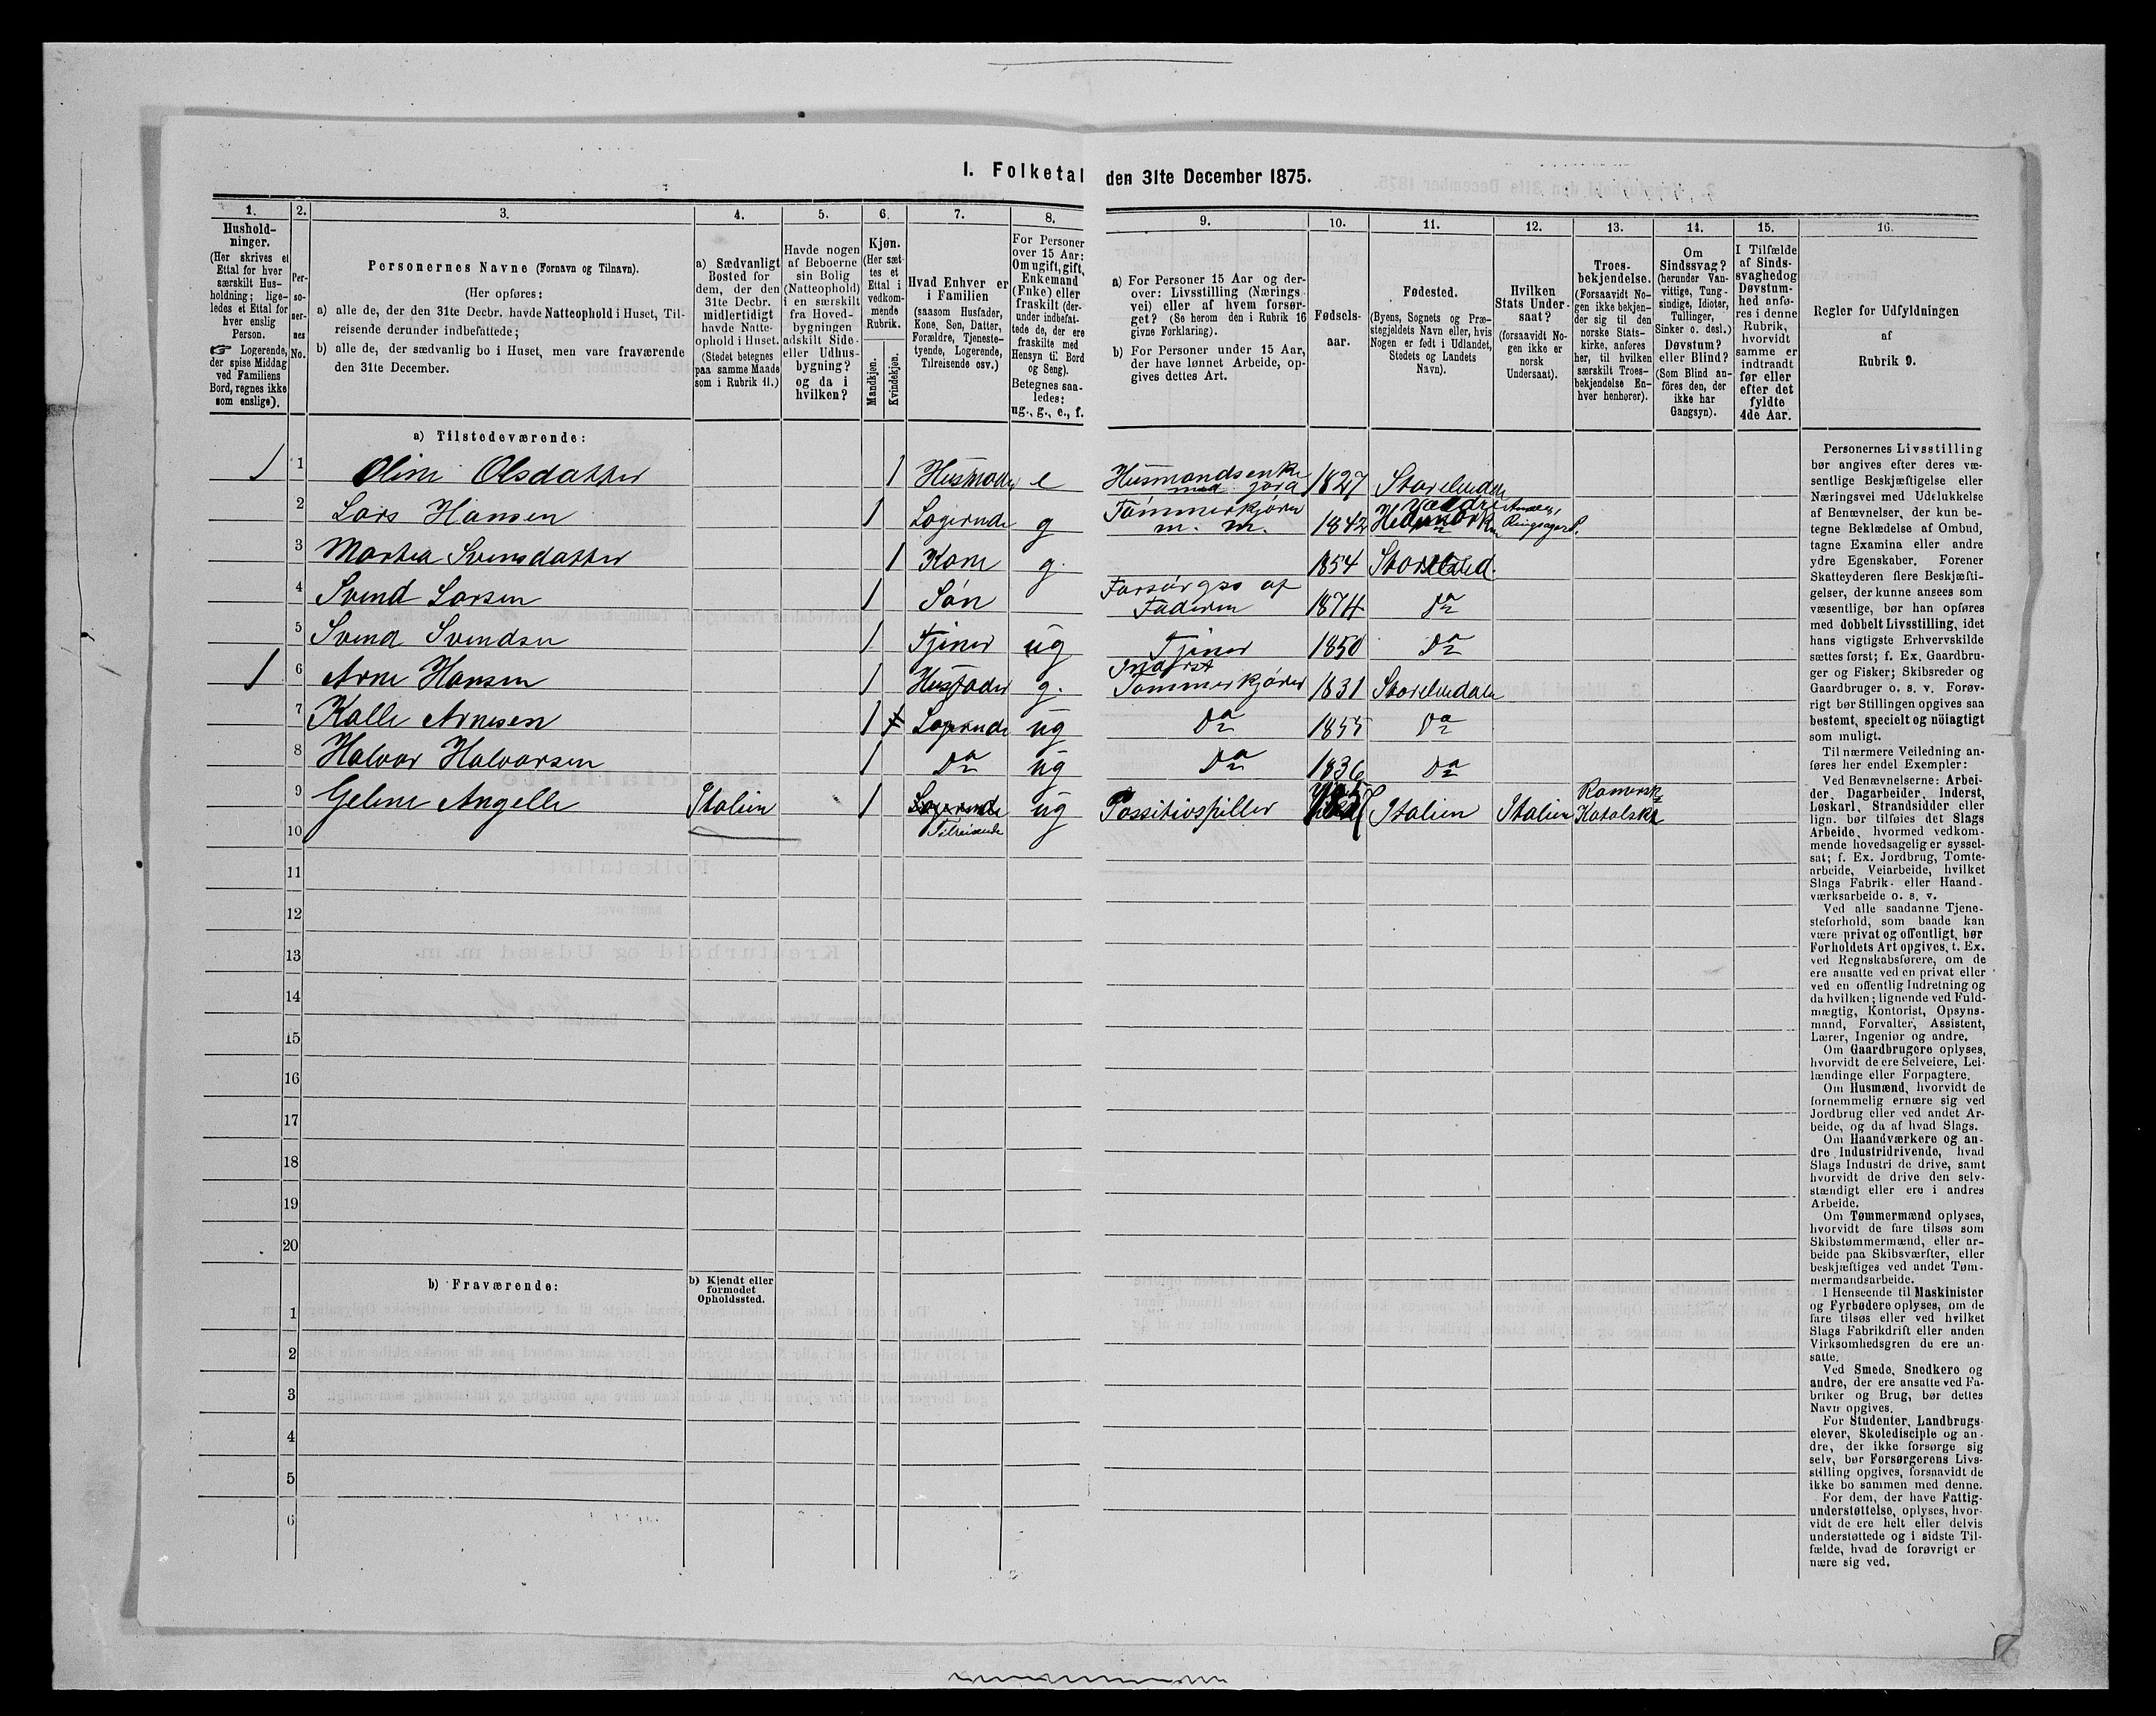 I. Folketal den 31te December 1875.
1. 2. 3. 4. 5. 6. 7. 8. 9. 10. 11. 12. 13. 14. 15. 16.
Hushold-
ninger.
(Her skrives et
Ettal for hver
særskilt Hus-
holdning; lige-
ledes et Ettal for
hver enslig
Person.
☞ Logerende,
der spise Middag
ved Familiens
Bord, regnes ikke
som enslige).
Per-
so-
ner-
nes
No.
Personernes Navne (Fornavn og Tilnavn).
(Her opføres:
a) alle de, der den 31te Decbr. havde Natteophold i Huset, Til-
reisende derunder indbefattede;
b) alle de, der sædvanlig bo i Huset, men vare fraværende
den 31te December.
a) Sædvanligt
Bosted for
dem, der den
31te Decbr.
midlertidigt
havde Natte-
ophold i Huset.
(Stedet betegnes
paa samme Maade
som i Rubrik 11.)
Havde nogen
af Beboerne
sin Bolig
(Natteophold)
i en særskilt
fra Hoved-
bygningen
adskilt Side-
eller Udhus-
bygning?
og da i
hvilken?
Kjøn.
(Her sæt-
tes et
Ettal i
vedkom-
mende
Rubrik.
Mandkjøn.
Kvindekjøn.
Hvad Enhver er
i Familien
(saasom Husfader,
Kone, Søn, Datter,
Forældre, Tjeneste-
tyende, Logerende,
Tilreisende osv.)
For Personer
over 15 Aar:
Om ugift, gift,
Enkemand
(Enke) eller
fraskilt (der-
under indbefat-
tede de, der ere
fraskilte med
Hensyn til Bord
og Seng).
Betegnes saa-
ledes:
ug., g., e., f.
a) For Personer 15 Aar og der-
over: Livsstilling (Nærings-
vei) eller af hvem forsør-
get? (Se herom den i Rubrik 16
givne Forklaring).
b) For Personer under 15 Aar,
der have lønnet Arbeide, op-
gives dettes Art.
Fødsels-
aar.
Fødested.
(Byens, Sognets og Præ-
stegjeldets Navn eller, hvis
Nogen er født i Udlandet,
Stedets og Landets
Navn).
Hvilken
Stats Under-
saat?
(forsaavidt No-
gen ikke er
norsk
Undersaat).
Troes-
bekjendelse.
(Forsaavidt No-
gen ikke bekjen-
der sig til den
norske Stats-
kirke, anføres
her, til hvilken
særskilt Troes-
bekjendelse En-
hver henhører).
Om
Sindssvag?
(herunder Van-
vittige, Tung-
sindige, Idioter,
Tullinger,
Sinker o. desl.)
Døvstum?
eller Blind?
(Som Blind an-
føres den, der
ikke har
Gangsyn).
I Tilfælde
af Sinds-
svaghed og
Døvstum-
hed anfø-
res i denne
Rubrik,
hvorvidt
samme er
indtraadt
før eller
efter det
fyldte
4de Aar.
Regler for Udfyldningen
af
Rubrik 9.
a) Tilstedeværende:
1 1 Oline Olsdatter 1 Husmoder e Husmandsenke med jord 1827 Storelvedalen
2 Lars Hansen 1 Logerende g Tømmerkjører m. m. 1842 Hedmarken Ringsager P.
3 Marthea Svensdatter 1 Kone g. 1854 Storelved.
4 Svend Larsen 1 Søn Forsørges af Faderen 1874 do
5 Svend Svendsen 1 Tjener ug Tjener 1850 do
1 6 Arne Hansen 1 Husfader g. Inderst Tømmerkjører 1831 Storelvedalen
7 Kalle Arnesen 1 Logerende ug do 1855 do
8 Halvor Halvorsen 1 do ug do 1836 do
9 Gelene Angelle Italien 1 Logerende Tilreisende ug Possitivspiller Italien Italien Romersk Katolske
10
11
12
13
14
15
16
17
18
19
20
b) Fraværende:
b) Kjendt eller
formodet
Opholdssted.
1
2
3
4
5
6
Personernes Livsstilling
bør angives efter deres væ-
sentlige Beskjæftigelse eller
Næringsvei med Udelukkelse
af Benævnelser, der kun be-
tegne Beklædelse af Ombud,
tagne Examina eller andre
ydre Egenskaber. Forener
Skatteyderen flere Beskjæfti-
gelser, der kunne ansees som
væsentlige, bør han opføres
med dobbelt Livsstilling, idet
hans vigtigste Erhvervskilde
sættes først; f. Ex. Gaardbru-
ger og Fisker; Skibsreder og
Gaardbruger o. s. v. Forøv-
rigt bør Stillingen opgives saa
bestemt, specielt og nöiagtigt
som muligt.
Til nærmere Veiledning an-
føres her endel Exempler:
Ved Benævnelserne: Arbei-
der, Dagarbeider, Inderst,
Løskarl, Strandsidder eller
lign. bør tilføies det Slags
Arbeide, hvormed vedkom-
mende hovedsagelig er syssel-
sat; f. Ex. Jordbrug, Tomte-
arbeide, Veiarbeide, hvilket
Slags Fabrik- eller Haand-
værksarbeide o. s. v.
Ved alle saadanne Tjene-
steforhold, som baade kan
være privat og offentligt, bør
Forholdets Art opgives, t. Ex.
ved Regnskabsførere, om de
ere ansatte ved en privat eller
ved en offentlig Indretning og
da hvilken; lignende ved Fuld-
mægtig, Kontorist, Opsyns-
mand, Forvalter, Assistent,
Lærer, Ingeniør og andre.
Om Gaardbrugere oplyses,
hvorvidt de ere Selveiere, Lei-
lændinge eller Forpagtere.
Om Husmænd, hvorvidt de
fornemmelig ernære sig ved
Jordbrug eller ved andet Ar-
beide, og da af hvad Slags.
Om Haandværkere og an-
dre Industridrivende, hvad
Slags Industri de drive, samt
hvorvidt de drive den selv-
stændigt eller ere i andres
Arbeide.
Om Tømmermænd oplyses,
hvorvidt de fare tilsøs som
Skibstømmermænd, eller ar-
beide paa Skibsværfter, eller
beskjæftiges ved andet Tøm-
mermandsarbeide.
I Henseende til Maskinister
og Fyrbødere oplyses, om de
fare tilsøs eller ved hvilket
Slags Fabrikdrift eller anden
Virksomhedsgren de ere an-
satte.
Ved Smede, Snedkere og
andre, der ere ansatte ved Fa-
briker og Brug, bør dettes
Navn opgives.
For Studenter, Landbrugs-
elever, Skoledisciple og an-
dre, der ikke forsørge sig
selv, bør Forsørgerens Livs-
stilling opgives, forsaavidt de
ikke bo sammen med denne.
For dem, der have Fattig-
understøttelse, oplyses, hvor-
vidt de ere helt eller delvis
understøttede og i sidste Til-
fælde, hvad de forøvrigt er
nære sig ved.